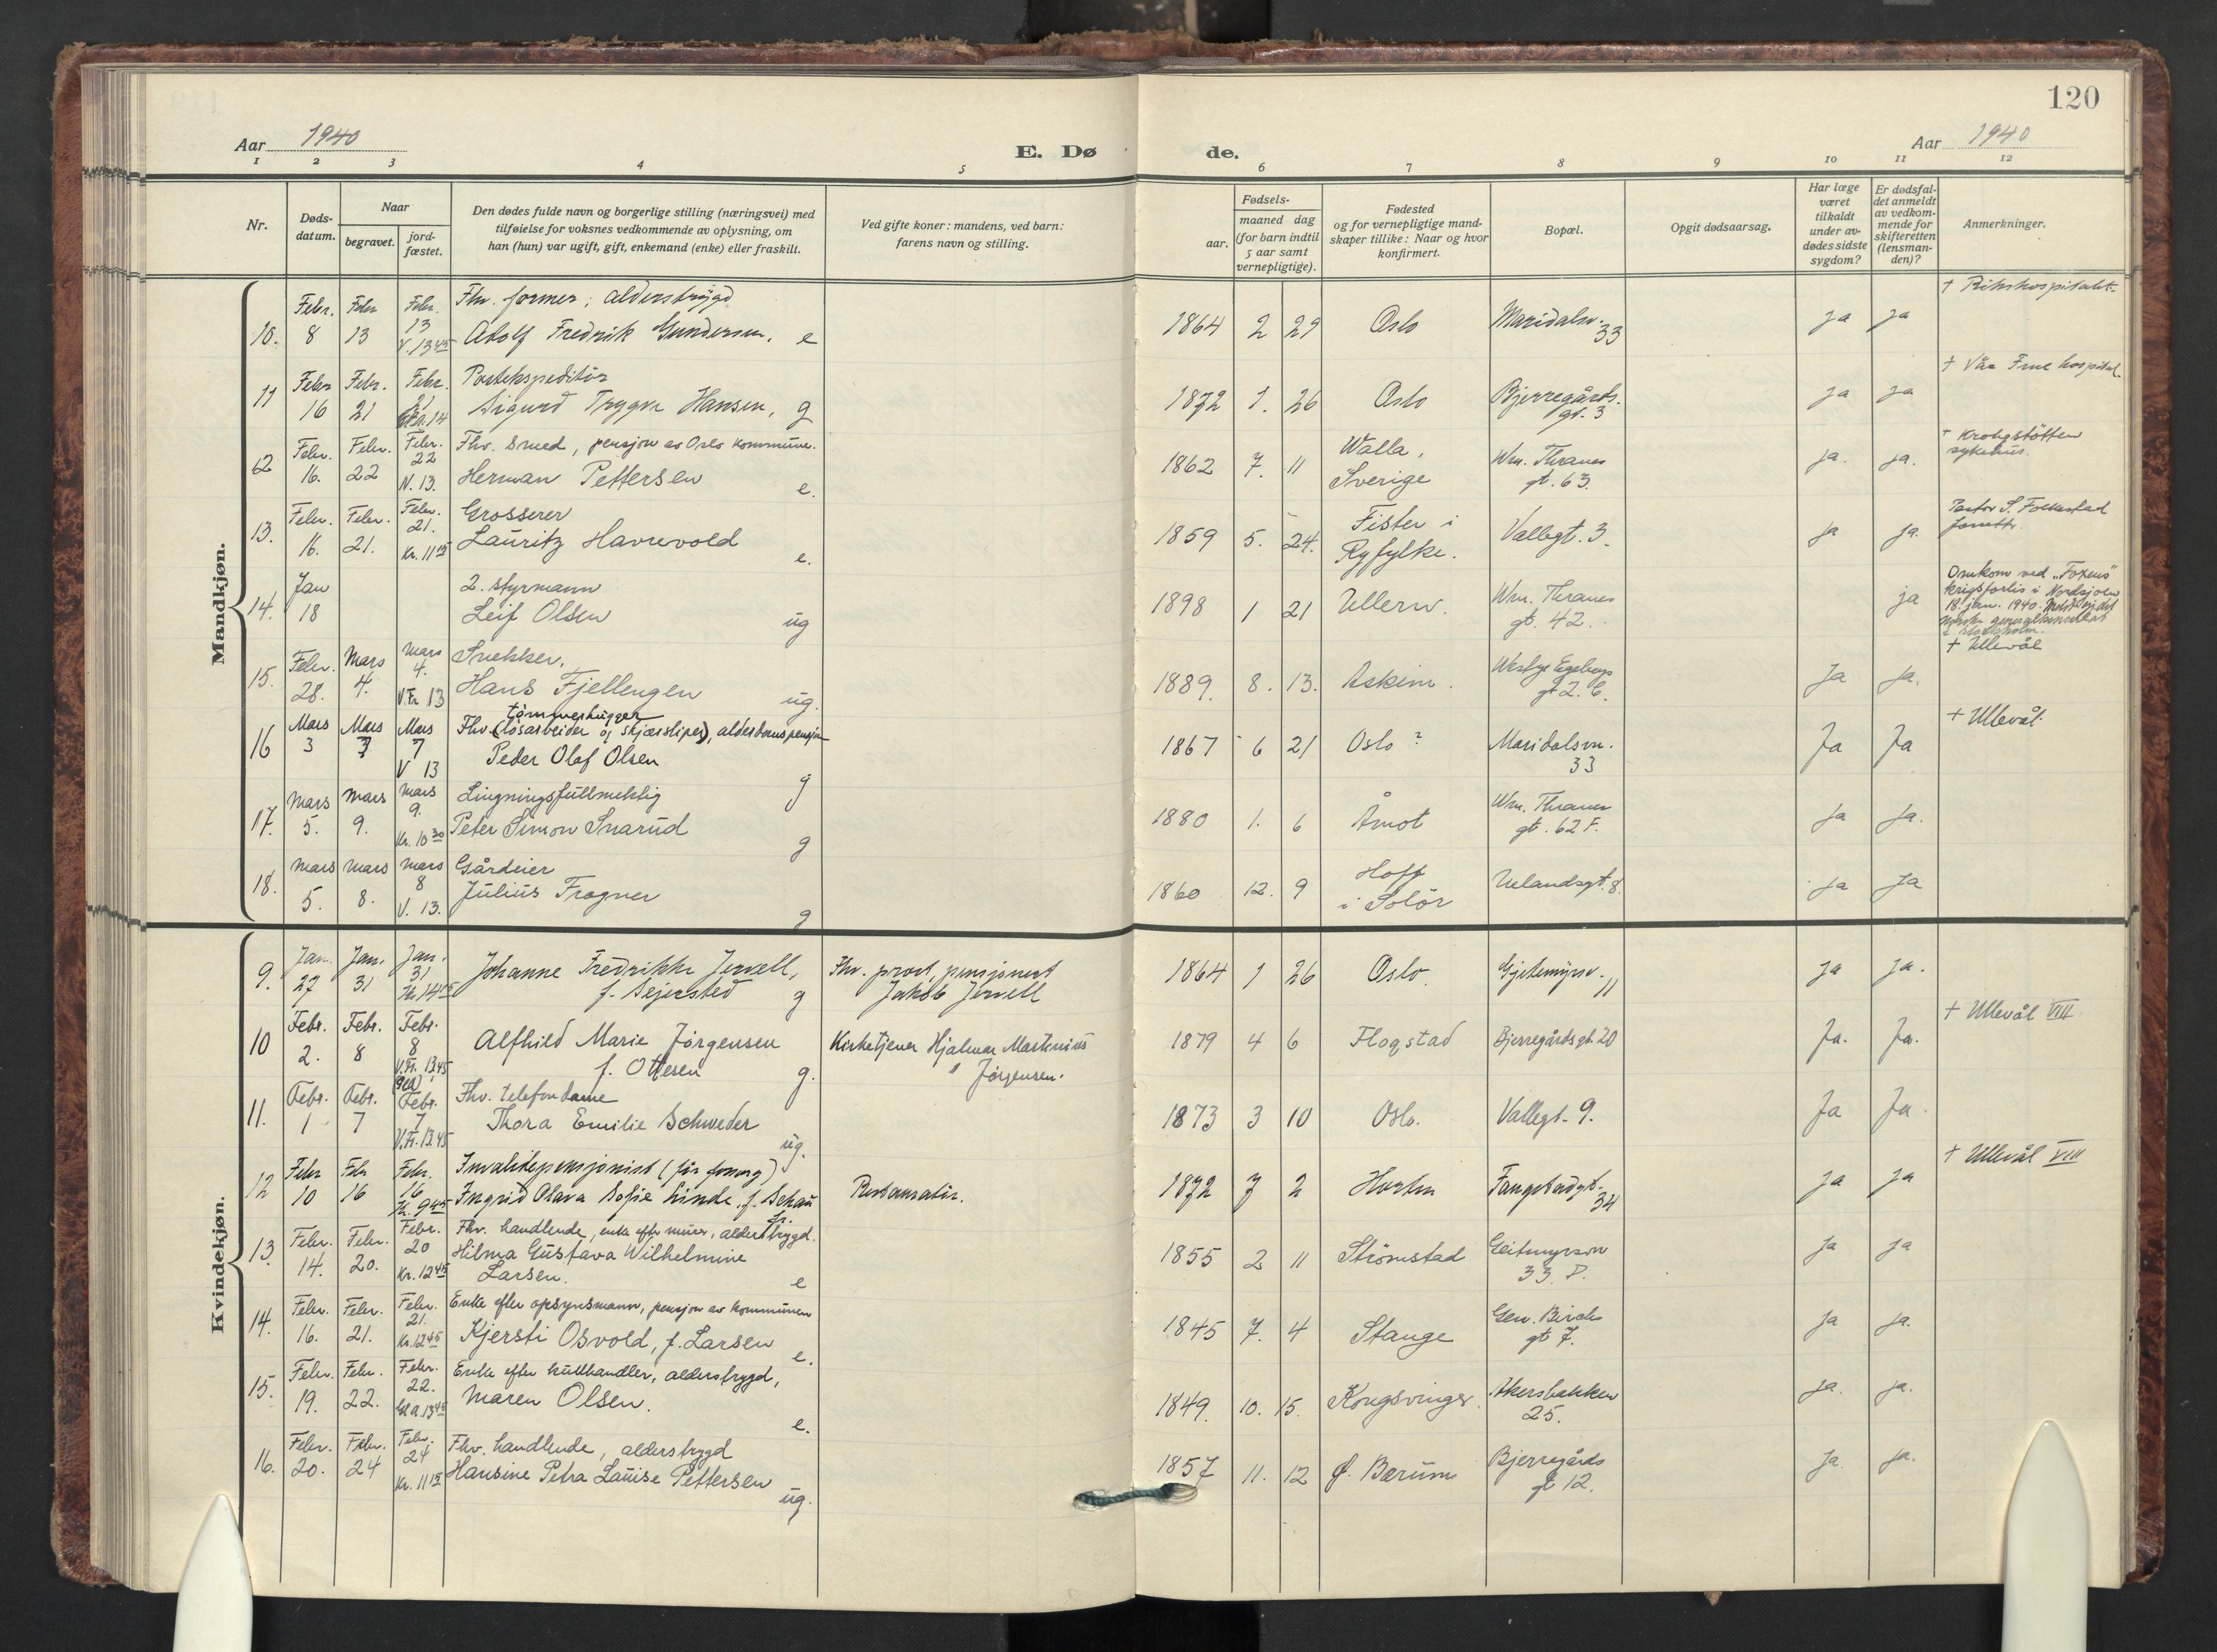 120
Aar 1940
E. Dø
de.
Aar 1940
1 2 3 4 5 6 7 8 9 10 11 12
Nr.
Døds-
datum.
Naar
begravet.
jord-
fæstet.
Den dødes fulde navn og borgerlige stilling (næringsvei) med
tilføielse for voksnes vedkommende av oplysning, om
han (hun) var ugift, gift, enkemand (enke) eller fraskilt.
Ved gifte koner: mandens, ved barn:
farens navn og stilling.
Fødsels-
aar.
maaned dag
(for barn indtil
5 aar samt
vernepligtige).
Fødested
og for vernepligtige mand-
skaper tillike: Naar og hvor
konfirmert.
Bopæl.
Opgit dødsaarsag.
Har læge
været
tilkaldt
under av-
dødes sidste
sygdom?
Er dødsfal-
det anmeldt
av vedkom-
mende for
skifteretten
(lensman-
den)?
Anmerkninger.
Mandkjøn.
Febr. Febr Febr. Fhv. former, alderstrygd † Rikshospitalet.
10. 8 13 13 V. 13 45 Adolf Fredrik Gundersen. e 1864 2 29 Oslo Maridalsv. 33 ja ja
Febr Febr. Febr. Postekspeditør † Vår Frue hospital.
11 16 21 21 14 Sigurd Trygve Hansen, g 1872 1. 26 Oslo Bjerregårds. gt. 3 ja ja
Febr. Febr. Febr. Fhv. Smed, pensjon av Oslo kommune. Walla, † Krohgstøtten
12 16. 22 22 N. 13. Herman Pettersen e. 1862 7. 11 Sverige Wm. Thranes gt. 63. ja. ja. sykehus.
Febr. Febr. Febr. Grosserer Fister i Pastor S. Folkestad
13. 16. 21. 21. Kr. 11 15 Lauritz Havrevold e. 1859 5. 24. Ryfylke. Vallegt. 3. ja ja. forrettr.
Jan 2. styrmann Omkom ved "Foxens"
14. 18 Leif Olsen ug 1898 1 21 Ullern. Wm. Thranes gt. 42. ja krigsforlis i Nordsjøen
18. jan. 1940. Meldt
norske generalkonsulat
i Stockholm.
Febr. Mars Mars Snekker. † Ullevål
15. 28. 4. 4. V.Fr 13 Hans Fjellengen ug. 1889. 8. 13. Askim. Westye Egebergs gt 2. C. Ja ja.
tømmerhugger
Mars Mars Mars Fhv. (løsarbeider og skjærsliper), alderdomspensjon † Ullevål.
16 3 7 7 V 13 Peder Olaf Olsen g 1867 6 21 Oslo? Maridalsvn. 33 Ja Ja
Mars Mars Mars Lingningsfullmektig
17. 5. 9. 9. Kr. 10 30 Peter Simon Snarud g 1880 1. 6 Åmot Wm. Thranes gt. 62 F. ja ja.
Mars Mars Mars Gårdeier Hoff
18. 5. 8. 8 V. 13. Julius Frogner g 1860 12. 9 i Solør Uelandsgt. 8. ja ja
Kvindekjøn.
Jan. Jan. Jan. Johanne Fredrikke Jervell, Fhv. prost, pensjonert
9. 27 31 31 14 f. Sejersted g Jakob Jervell 1864 1 26 Oslo Gjetemyrsv. 11 ja ja.
Febr. Febr. Febr. Alfhild Marie Jørgensen Kirketjener Hjalmar Martinius † Ullevål VIII
10 2. 8 8 V.Fr. 13,45 f. Ottesen g. Jørgensen. 1879 4 6 Flogstad Bjerregårdsgt. 20 Ja. Ja.
Febr. Febr. Febr. Fhv. telefondame
11. 1 7 7 V.Fr. 13,45 Thora Emilie Schweder ug. 1873 3 10 Oslo. Vallegt. 9. Ja Ja.
Febr Febr Febr. Invalidepensjonist (før forsørg) † Ullevål VIII
12 10 16 16 9 45 Ingrid Olava Sofie Linde. f. Schau fr. Restauratør. 1872 7 2 Horten 34 ja ja
Febr. Febr. Febr. Fhv. handlende, enke efter murer, alderstrygd.
13. 14. 20. 20 Kr. 12 45 Hilma Gustava Wilhelmine Larsen. e 1855 2 11 Strömstad Geitmyrsvn 33. D. ja ja
Febr. Febr. Febr. Enke efter opsynsmann, pensjon av kommunen
14. 16. 21. 21. Kr. 12 45 Kjersti Osvold, f. Larsen e. 1845 7. 4 Stange Gen. Birchs gt 7. ja ja.
Febr. Febr. Febr. Enke efter kullhandler, alderstrygd,
15. 19. 22. 22. Gl a 13 45 Maren Olsen. e. 1849. 10. 15. Kongsvinger. Akersbakken 25. ja. ja.
Febr. Febr. Febr. Fhv. handlende, alderstrygd
16. 20. 24 24 Kr. 11 15 Hansine Petra Lauise Pettersen ug. 1857 11. 12 Ø. Bærum Bjerregårds gt 12. Ja. ja.